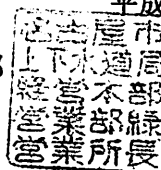 平成
名古屋市
上下水道局
経営本部
営業部緑
営業所長